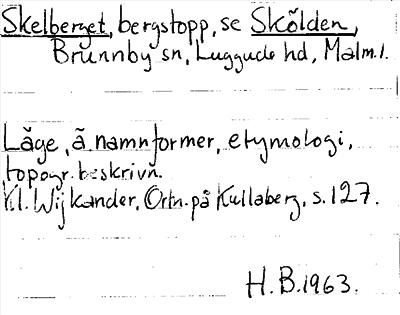 Skelberget, bergstopp, se Skölden,
Brunnby sn, Luggude hd, Malm.l.
Läge, ä. namnformer, etymologi,
topogr. beskrivn.
Kl. Wijkander, Ortn. på Kullaberg, s. 127.
H. B. 1963.